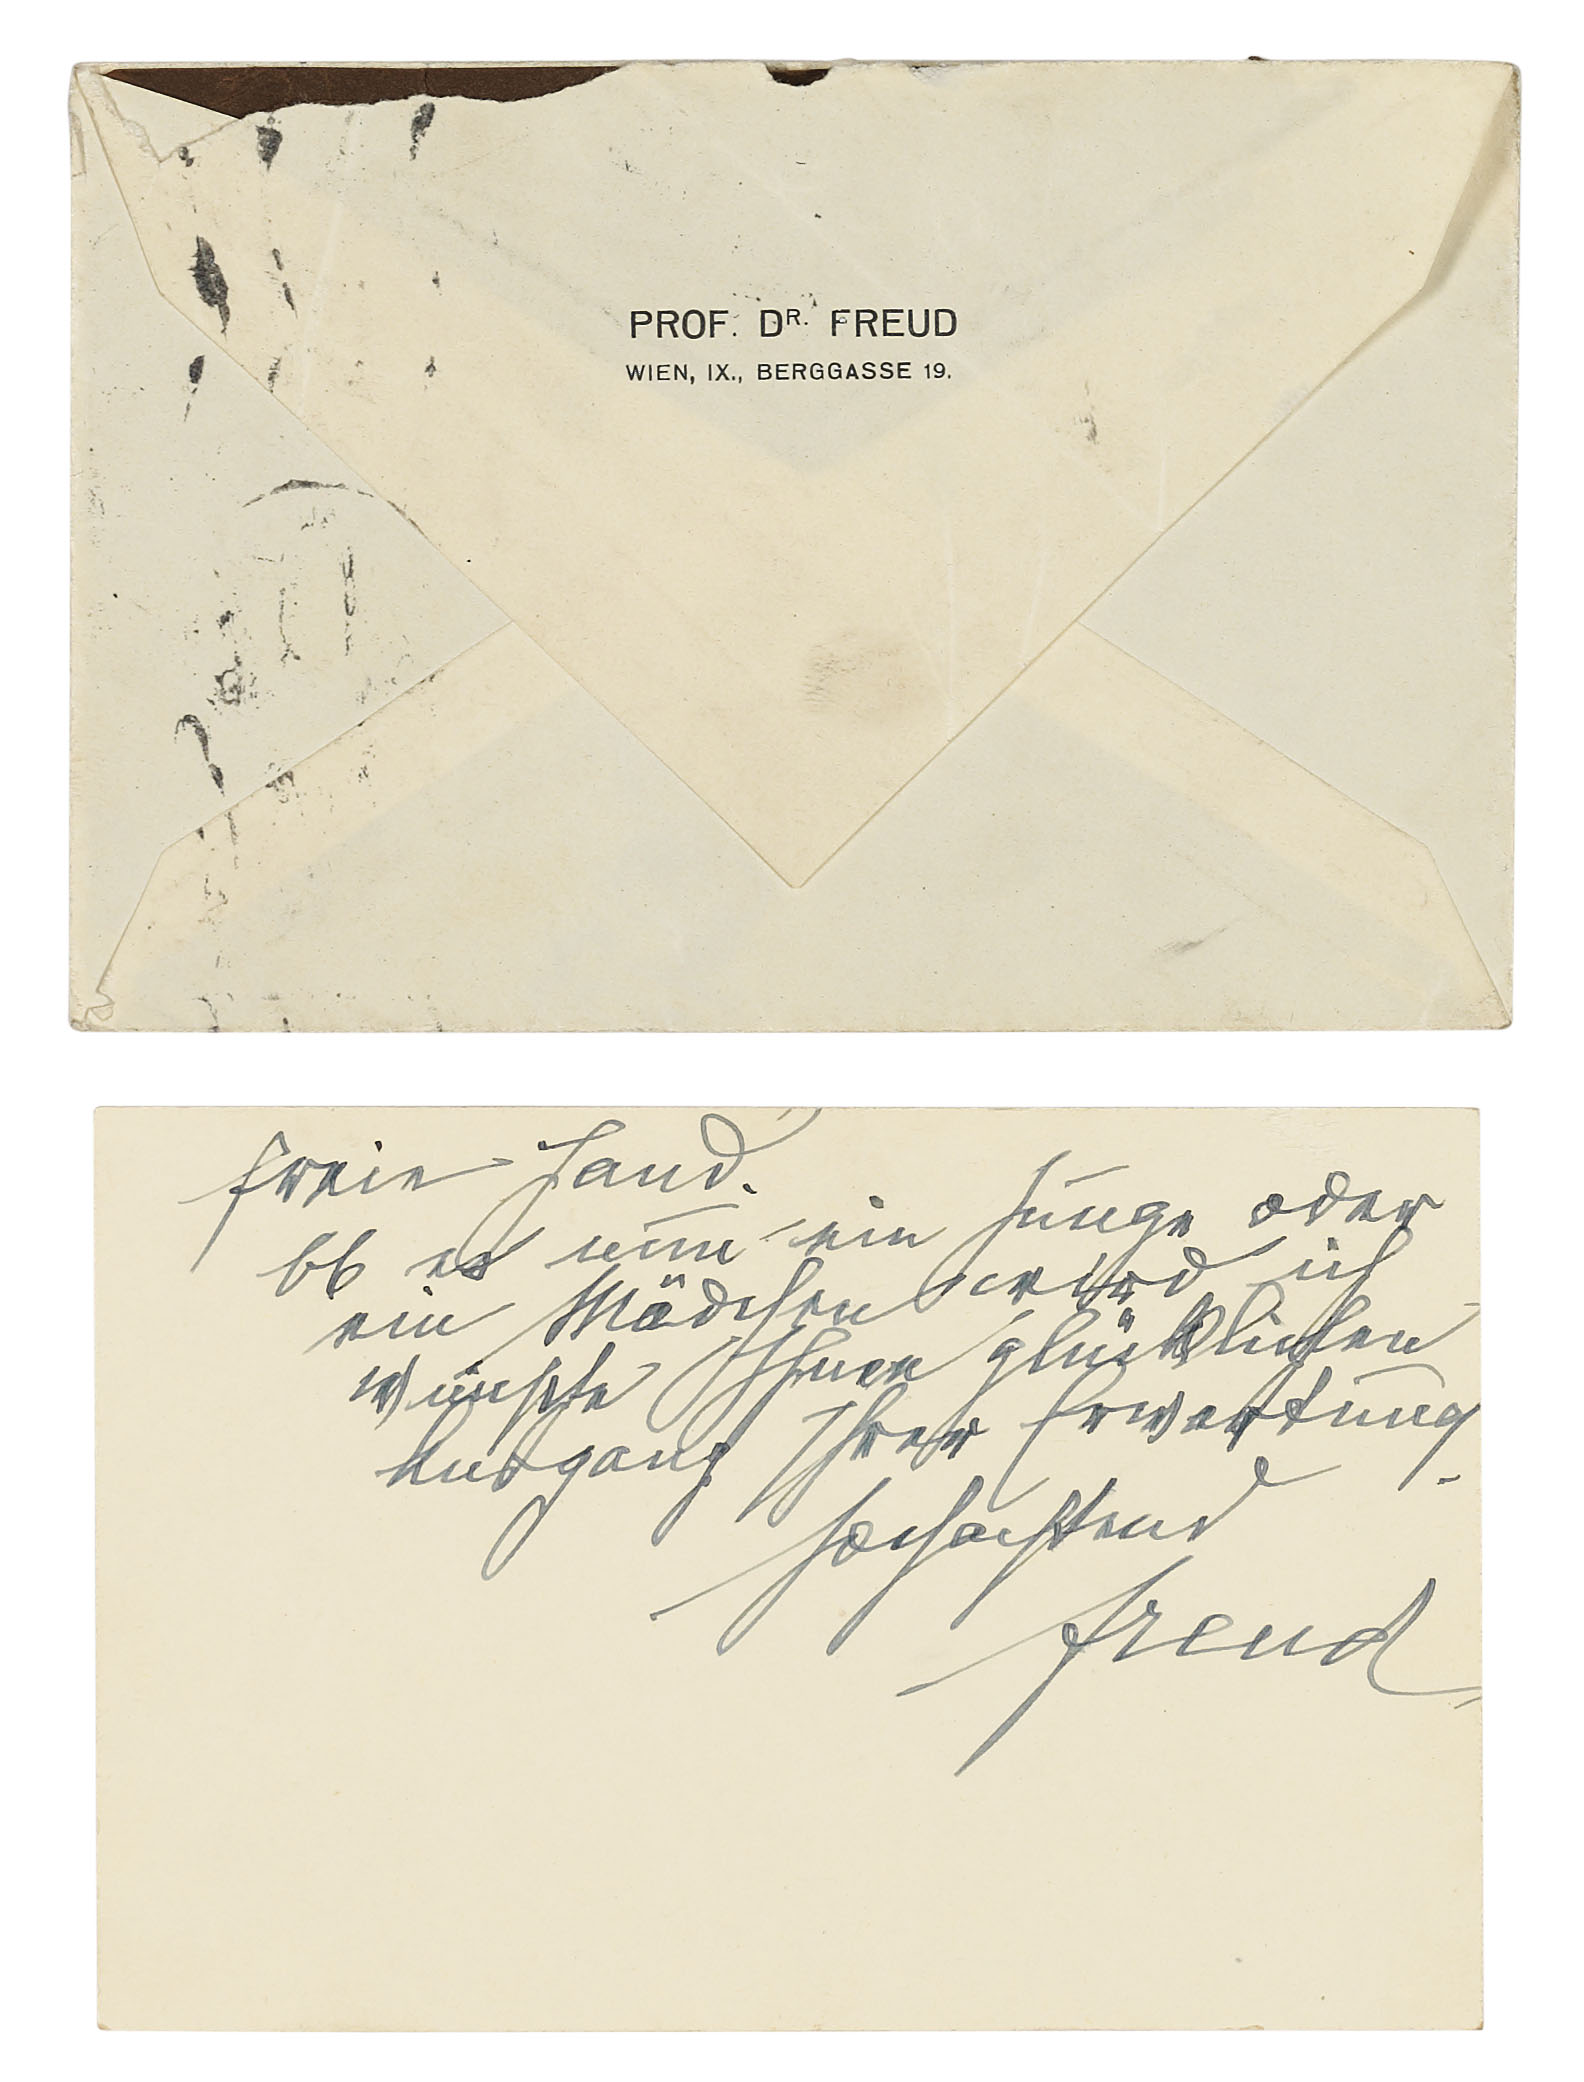 PROF. DR. FREUD
WIEN, IX., BERGGASSE 19.
freie Hand.
Ob es nun ein Junge oder
ein Mädchen wird ich
wünsche Ihnen glücklichen
Ausgang Ihrer Erwartung.
Hochachtend
Freud